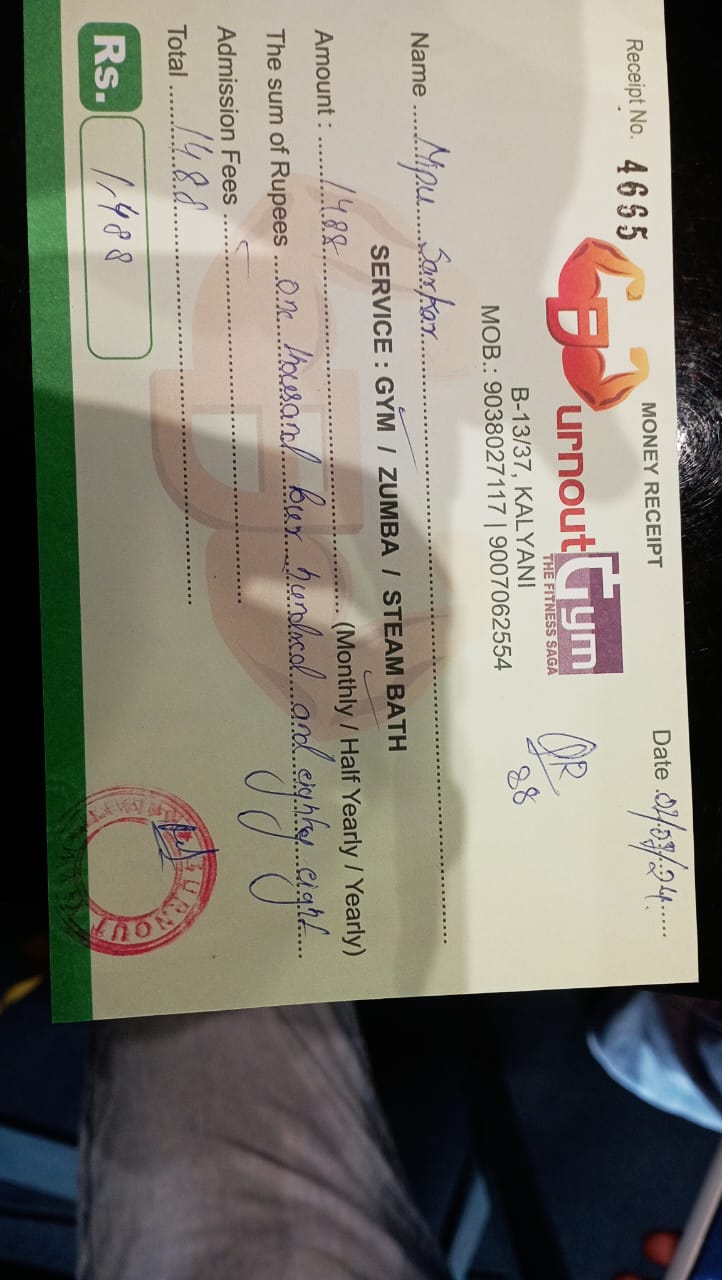 Receipt No. 4665
MONEY RECEIPT
Date 07/07/24
Burnout Gym
THE FITNESS SAGA
QR
88
B-13/37, KALYANI
MOB.: 9038027117 | 9007062554
Name Nipu Sarkar
SERVICE : GYM / ZUMBA / STEAM BATH
Amount : 1488 (Monthly / Half Yearly / Yearly)
The sum of Rupees one thousand four hundred and eighty eight
Admission Fees
Total 1488
Rs. 1,488
BURNOUT